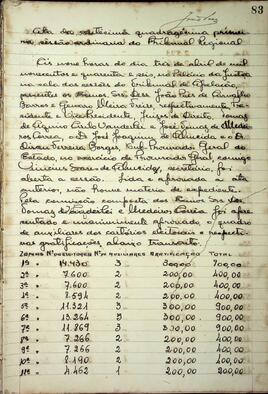 83
Acta da centesima quadragesima primeira
sessão ordinaria do Tribunal Regional
Ás nove horas do dia tres de abril de mil
novecentos e quarenta e seis, no Palacio da Justiça
na sala das sessões do Tribunal de Apelação,
presentes os Exmos. Srs. Des. João Paes de Carvalho
Barros e Genaro Freire, respectivamente Presidente
e Vice-Presidente, Juizes de Direito, Tomaz
de Aquino Cavalcanti e José Tomaz de Medeiros
Correia, Dr. José Joaquim de Almeida e o
Dr. Ferreira Borges, Sub Procurador Geral do
Estado, no exercicio de Procurador Geral, comigo
Soares de Albuquerque, secretario, foi
aberta a sessão. Lida e aprovada a acta
anterior, não houve materia de expediente.
Pela comissão composta dos Exmos. Srs. Drs.
Tomaz Cavalcanti e Medeiros Correia foi apresentado
e unanimemente aprovado o quadro
de auxiliares dos cartorios eleitorais e respectivas
gratificações abaixo transcrito.
ZONAS Nº DE ELEITORES Nº DE AUXILIARES GRATIFICAÇÃO TOTAL
1ª " 14.430 3 300,00 900,00
2ª " 7.600 2 200,00 400,00
3ª " 7.600 2 200,00 400,00
4ª " 8.694 2 200,00 400,00
5ª " 11.321 3 300,00 900,00
6ª " 13.264 3 300,00 900,00
7ª " 11.869 3 300,00 900,00
8ª " 7.266 2 200,00 400,00
9ª " 7.266 2 200,00 400,00
10ª " 8.190 2 200,00 400,00
11ª " 4.462 1 200,00 200,00